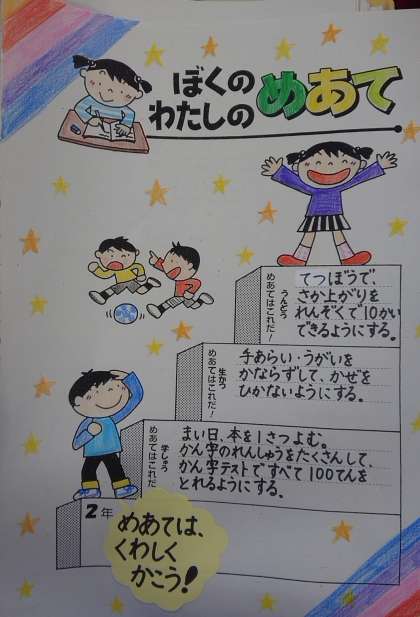 ぼくの
わたしの めあて
うんどう
めあてはこれだ!
てつぼうで、
さか上がりを
れんぞくで10かい
できるようにする。
生かつ
めあてはこれだ!
手あらい・うがいを
かならずして、かぜを
ひかないようにする。
学しゅう
めあてはこれだ
まい日、本を1さつよむ。
かん字のれんしゅうをたくさんして、
かん字テストですべて100てんを
とれるようにする。
2年
めあては、
くわしく
かこう!